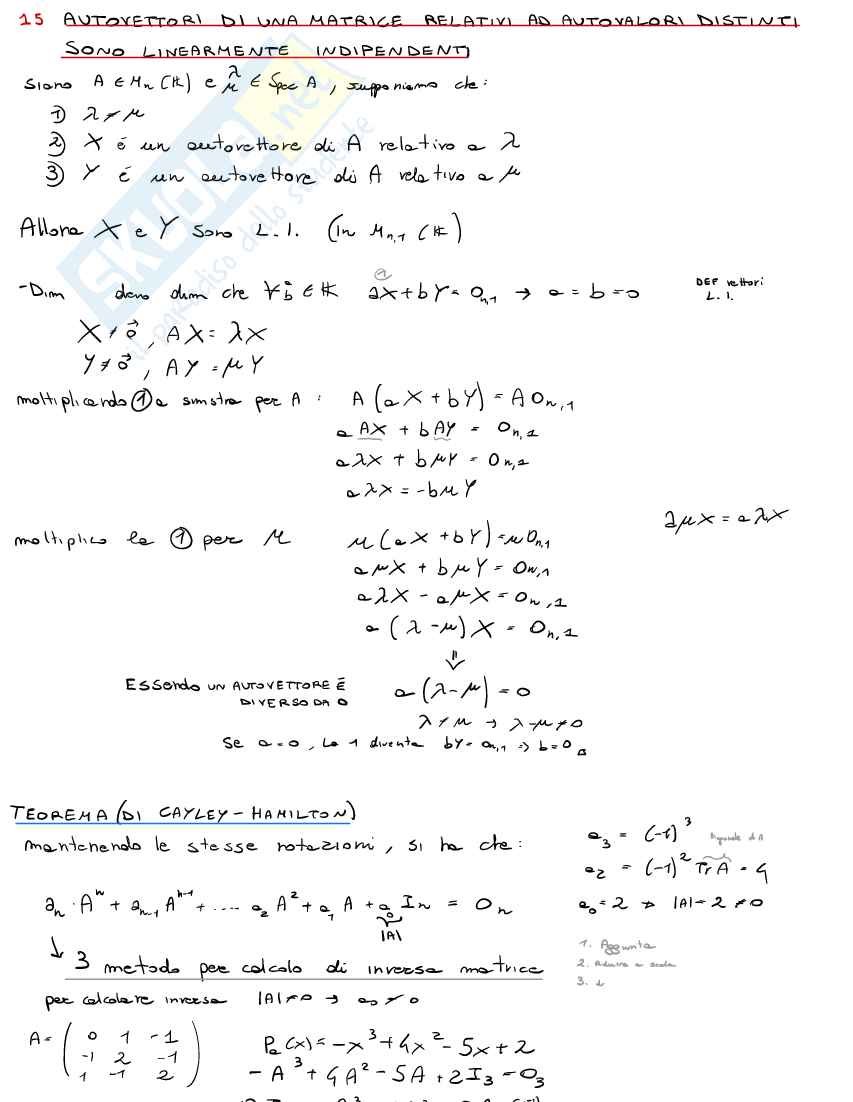 15 AUTOVETTORI DI UNA MATRICE RELATIVI AD AUTOVALORI DISTINTI
SONO LINEARMENTE INDIPENDENTI
Siano A ∈ Mn (K) e λ, μ ∈ Spec A, supponiamo che:
1) λ ≠ μ
2) X é un autovettore di A relativo a λ
3) Y é un autovettore di A relativo a μ
Allora X e Y sono L.I. (in Mn,1 (K))
-Dim devo dim che ∀ a, b ∈ K aX+bY = On,1 → a = b = 0 ①
DEF vettori
L.I.
X ≠ 0⃗, AX = λX
Y ≠ 0⃗, AY = μY
moltiplicando ① a sinistra per A : A (aX + bY) = A On,1
a AX + b AY = On,1
aλX + bμY = On,1
aλX = -bμY
aμX = aλX
moltiplico la ① per μ μ (aX + bY) = μ On,1
aμX + bμY = On,1
aλX - aμX = On,1
a (λ - μ) X = On,1
⇓
ESSENDO UN AUTOVETTORE É DIVERSO DA 0 a (λ - μ) = 0
λ ≠ μ → λ - μ ≠ 0
Se a=0, la 1 diventa bY = On,1 ⇒ b = 0
TEOREMA (DI CAYLEY-HAMILTON)
mantenendo le stesse notazioni, si ha che:
an · Aⁿ + an-1 Aⁿ⁻¹ + .... a2 A² + a1 A + a0 In = On
|A|
a3 = (-1)³
a2 = (-1)² Tr A = 4
a0 = 2 ⇒ |A| = 2 ≠ 0
1. Aggiunta
2. Riduzione a scala
3. 1
↓ 3 metodo per calcolo di inversa matrice
per calcolare inversa |A| ≠ 0 → a0 ≠ 0
A = ( 0 1 -1
-1 2 -1
1 -1 2 )
Pa(x) = -x³ + 4x² - 5x + 2
- A³ + 4A² - 5A + 2I3 = O3
SKUOLA.net
il paradiso dello studente